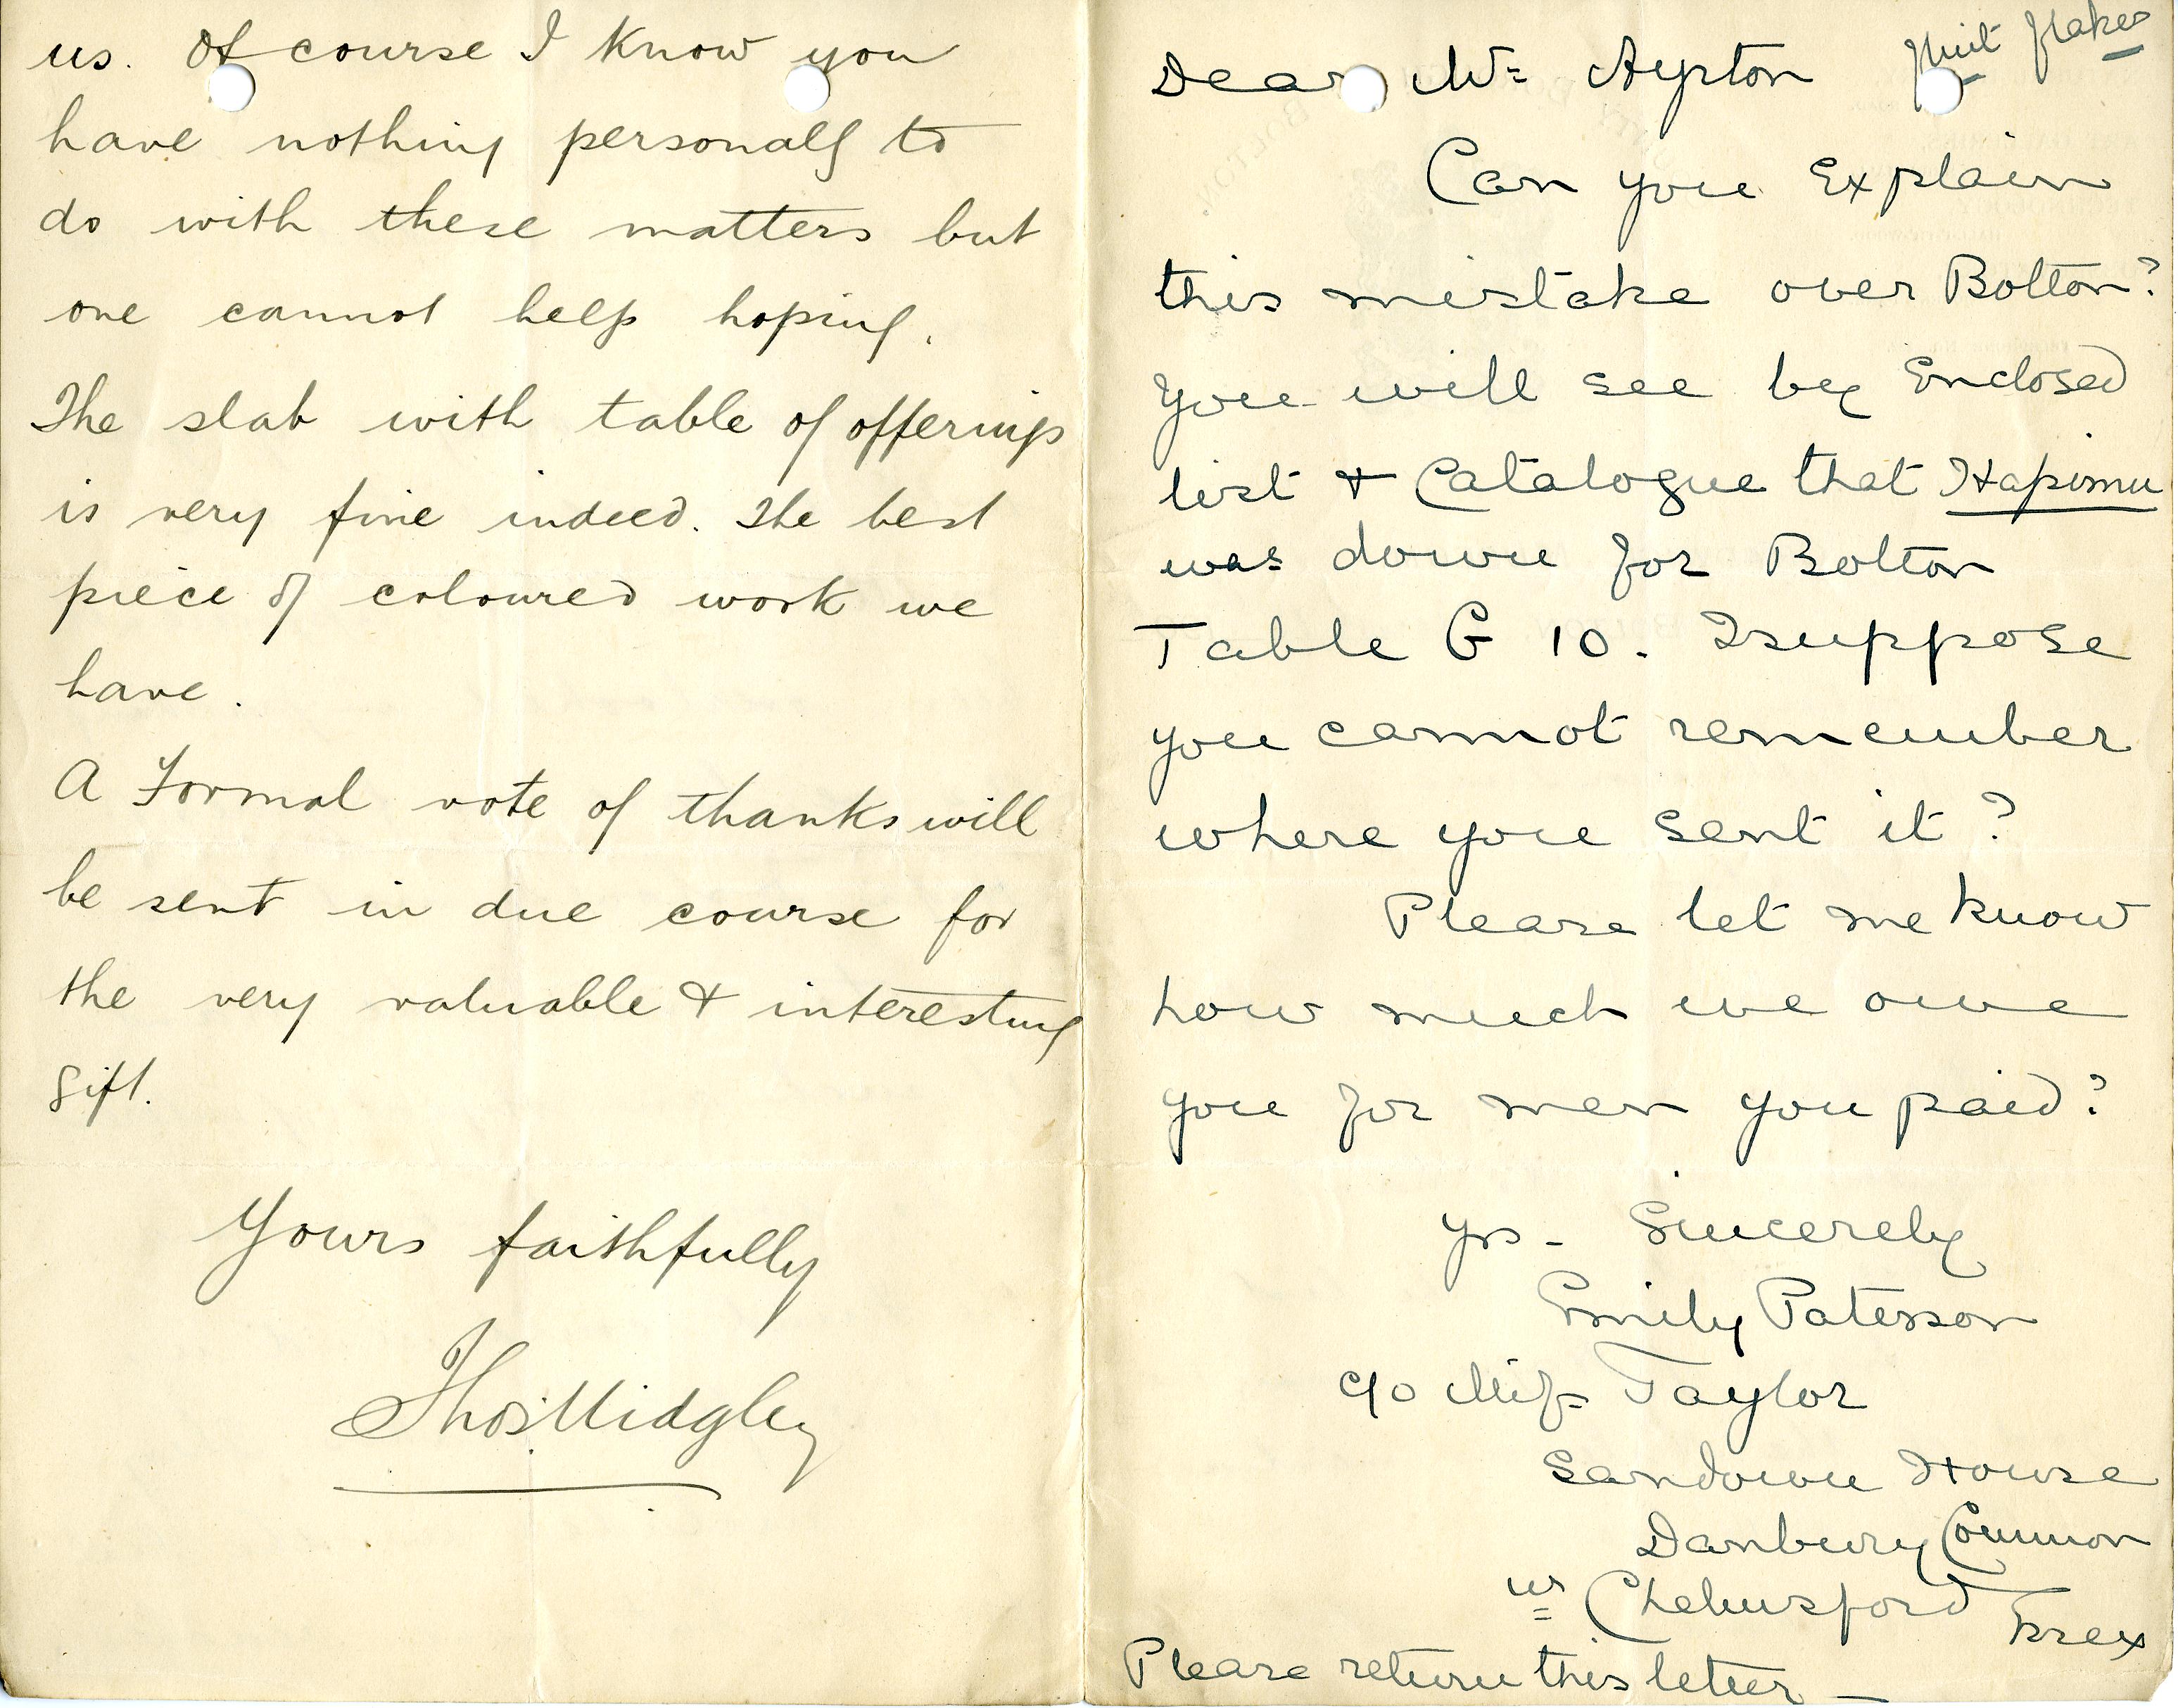 us. Of course I know you
have nothing personally to
do with these matters but
one cannot help hoping.
The slab with table of offerings
is very fine indeed. The best
piece of coloured work we
have.
A Formal vote of thanks will
be sent in due course for
the very valuable & interesting
gift.
Yours faithfully
Thos Midgley
flint flakes
Dear Mr Ayrton
Can you Explain
this mistake over Bolton?
You will see by Enclosed
list & Catalogue that Hapimu
was down for Bolton
Table G 10. I suppose
you cannot remember
where you sent it?
Please let me know
how much we owe
you for men you paid?
Yrs - Sincerely
Emily Paterson
c/o Miss Taylor
Sandown House
Danbury Common
nr Chelmsford Essex
Please return this letter —